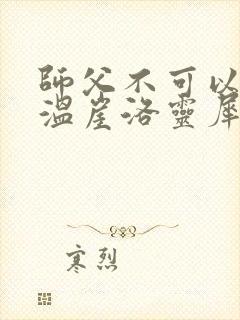 師父不可以
溫崖洛靈犀
寒烈